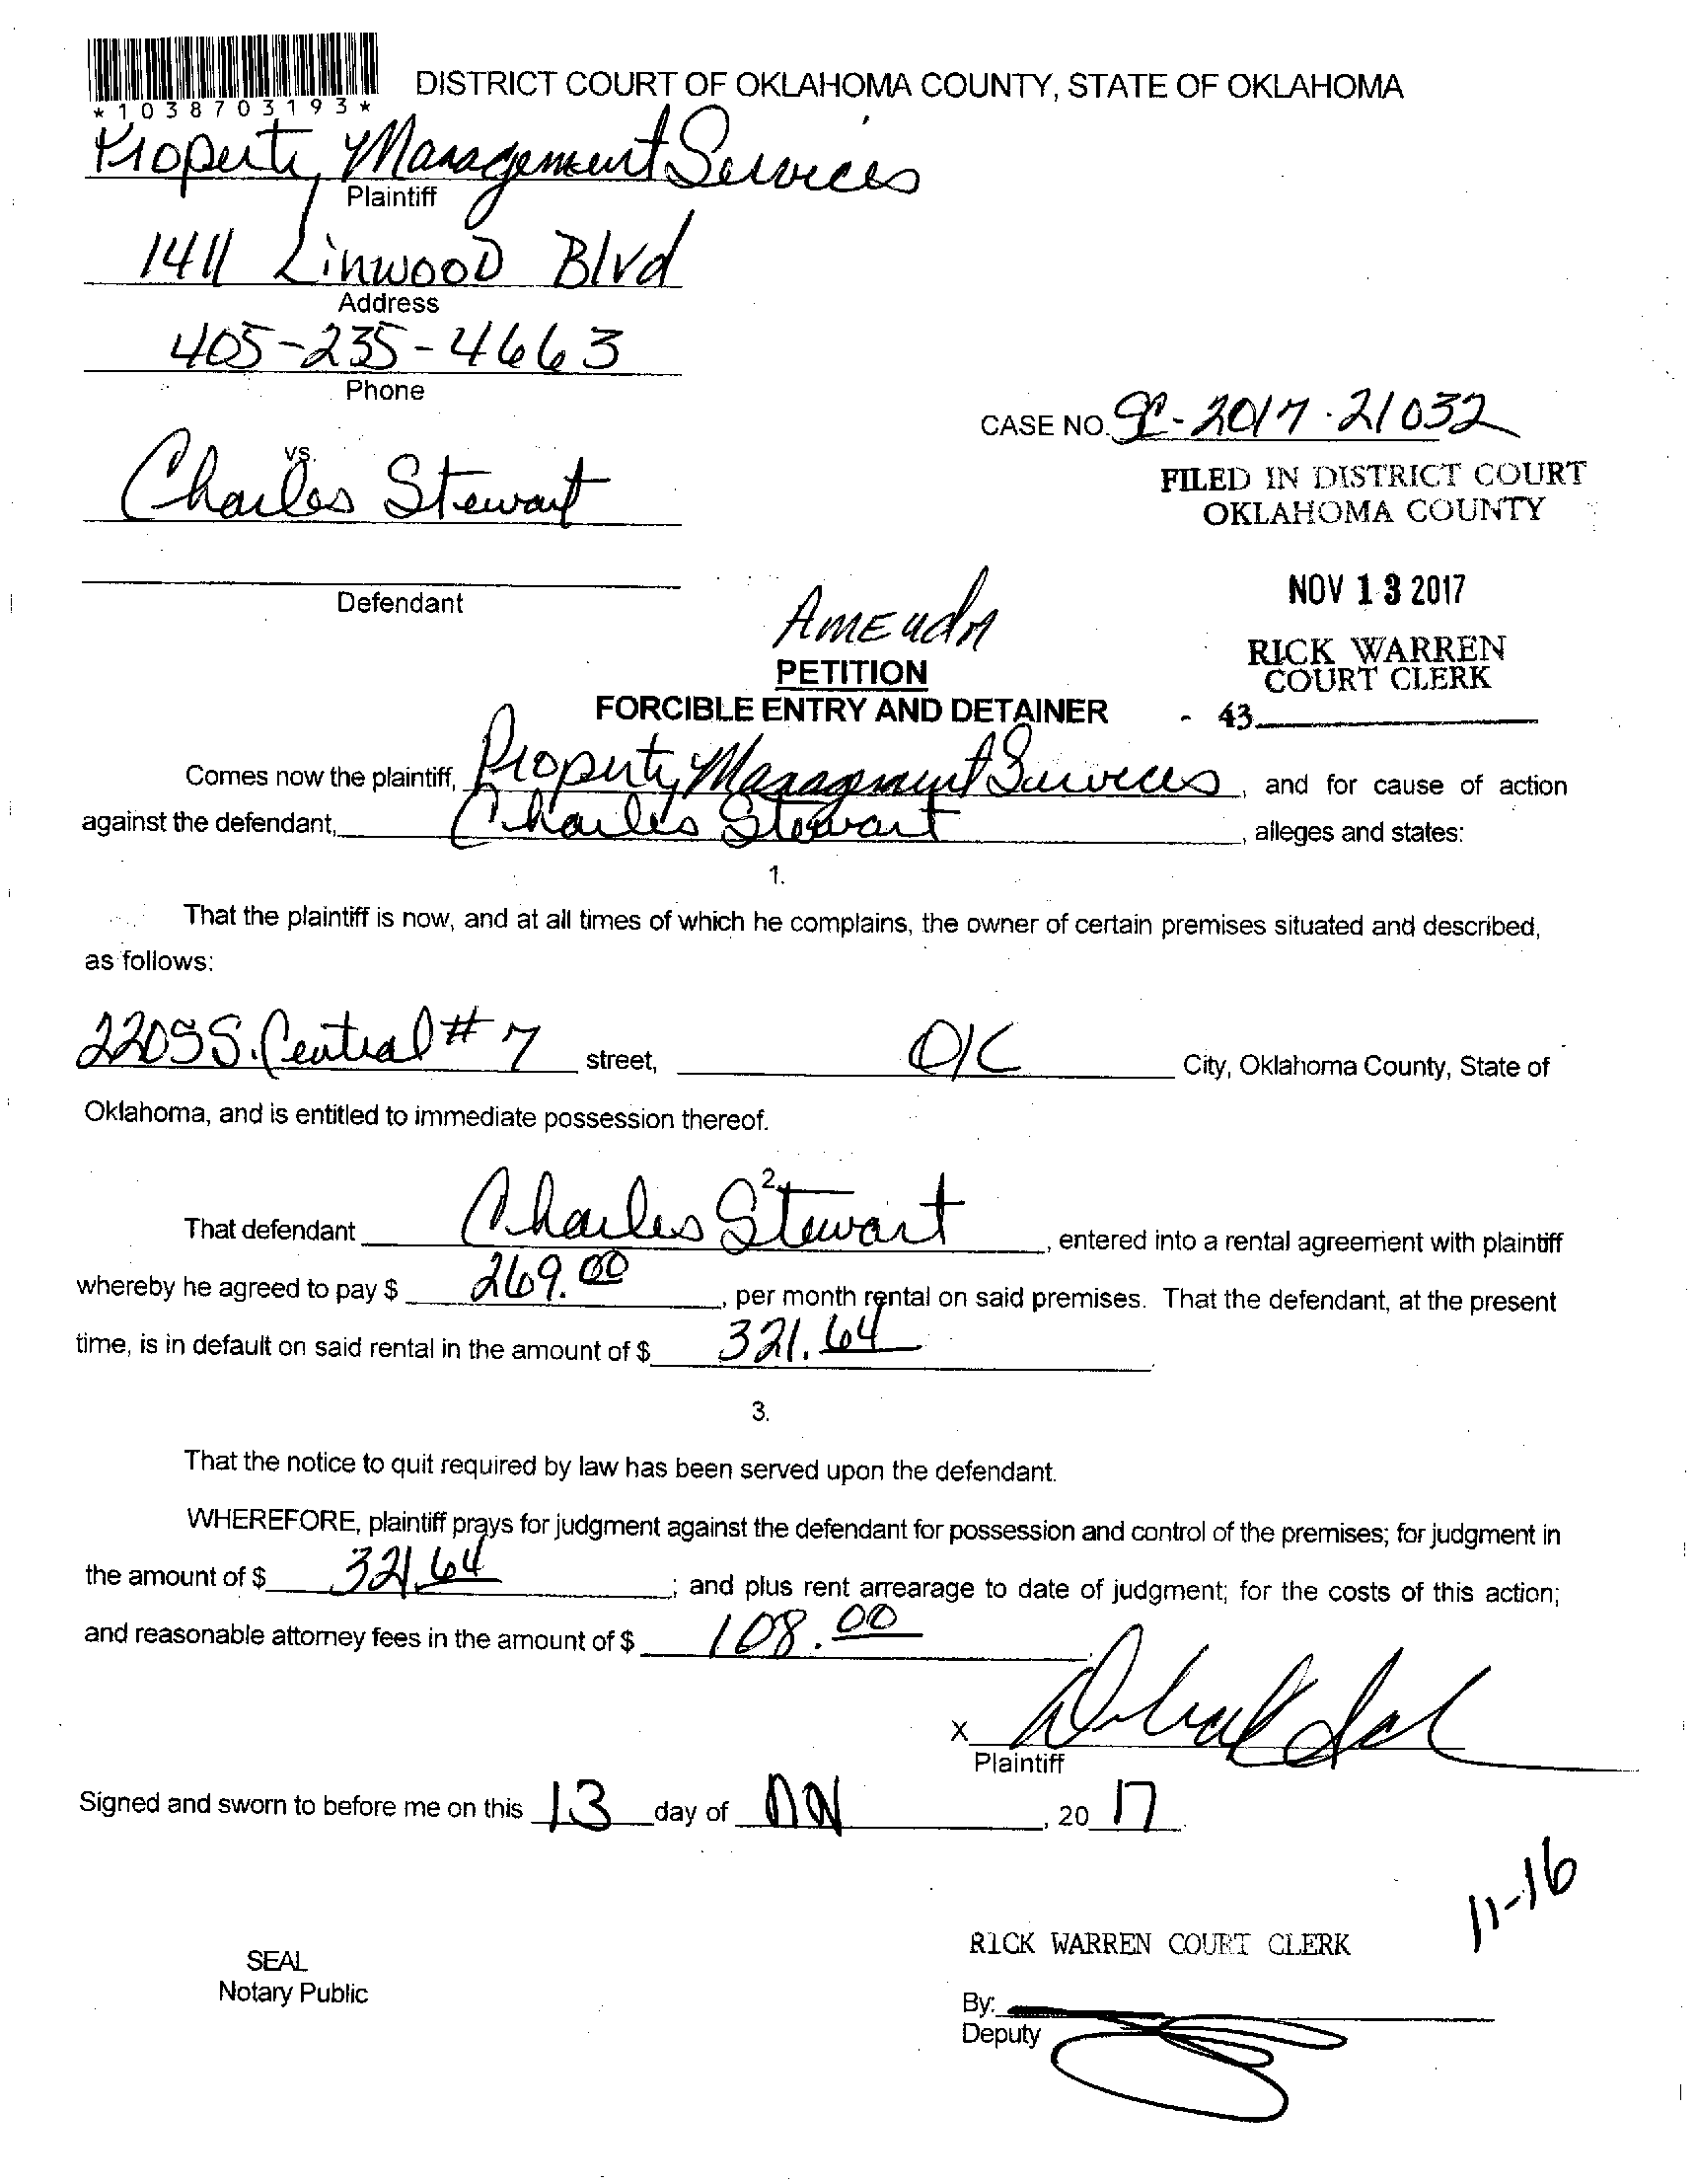 *1038703193*
DISTRICT COURT OF OKLAHOMA COUNTY, STATE OF OKLAHOMA
Property Management Services
Plaintiff
1411 Linwood Blvd
Address
405-235-4663
Phone
CASE NO. SC-2017-21032
vs.
Charles Stewart
FILED IN DISTRICT COURT
OKLAHOMA COUNTY
Defendant
NOV 13 2017
RICK WARREN
COURT CLERK
43
PETITION
FORCIBLE ENTRY AND DETAINER
Comes now the plaintiff, Property Managment Services, and for cause of action
against the defendant, Charles Stewart, alleges and states:
1.
That the plaintiff is now, and at all times of which he complains, the owner of certain premises situated and described,
as follows:
2205 S. Central # 7 street, OK City, Oklahoma County, State of
Oklahoma, and is entitled to immediate possession thereof.
2.
That defendant Charles Stewart, entered into a rental agreement with plaintiff
whereby he agreed to pay $ 269.00, per month rental on said premises. That the defendant, at the present
time, is in default on said rental in the amount of $ 321.64
3.
That the notice to quit required by law has been served upon the defendant.
WHEREFORE, plaintiff prays for judgment against the defendant for possession and control of the premises; for judgment in
the amount of $ 321.64; and plus rent arrearage to date of judgment; for the costs of this action;
and reasonable attorney fees in the amount of $ 108.00
X
Plaintiff
Signed and sworn to before me on this 13 day of Nov, 20 17
11-16
RICK WARREN COURT CLERK
SEAL
Notary Public
By:
Deputy